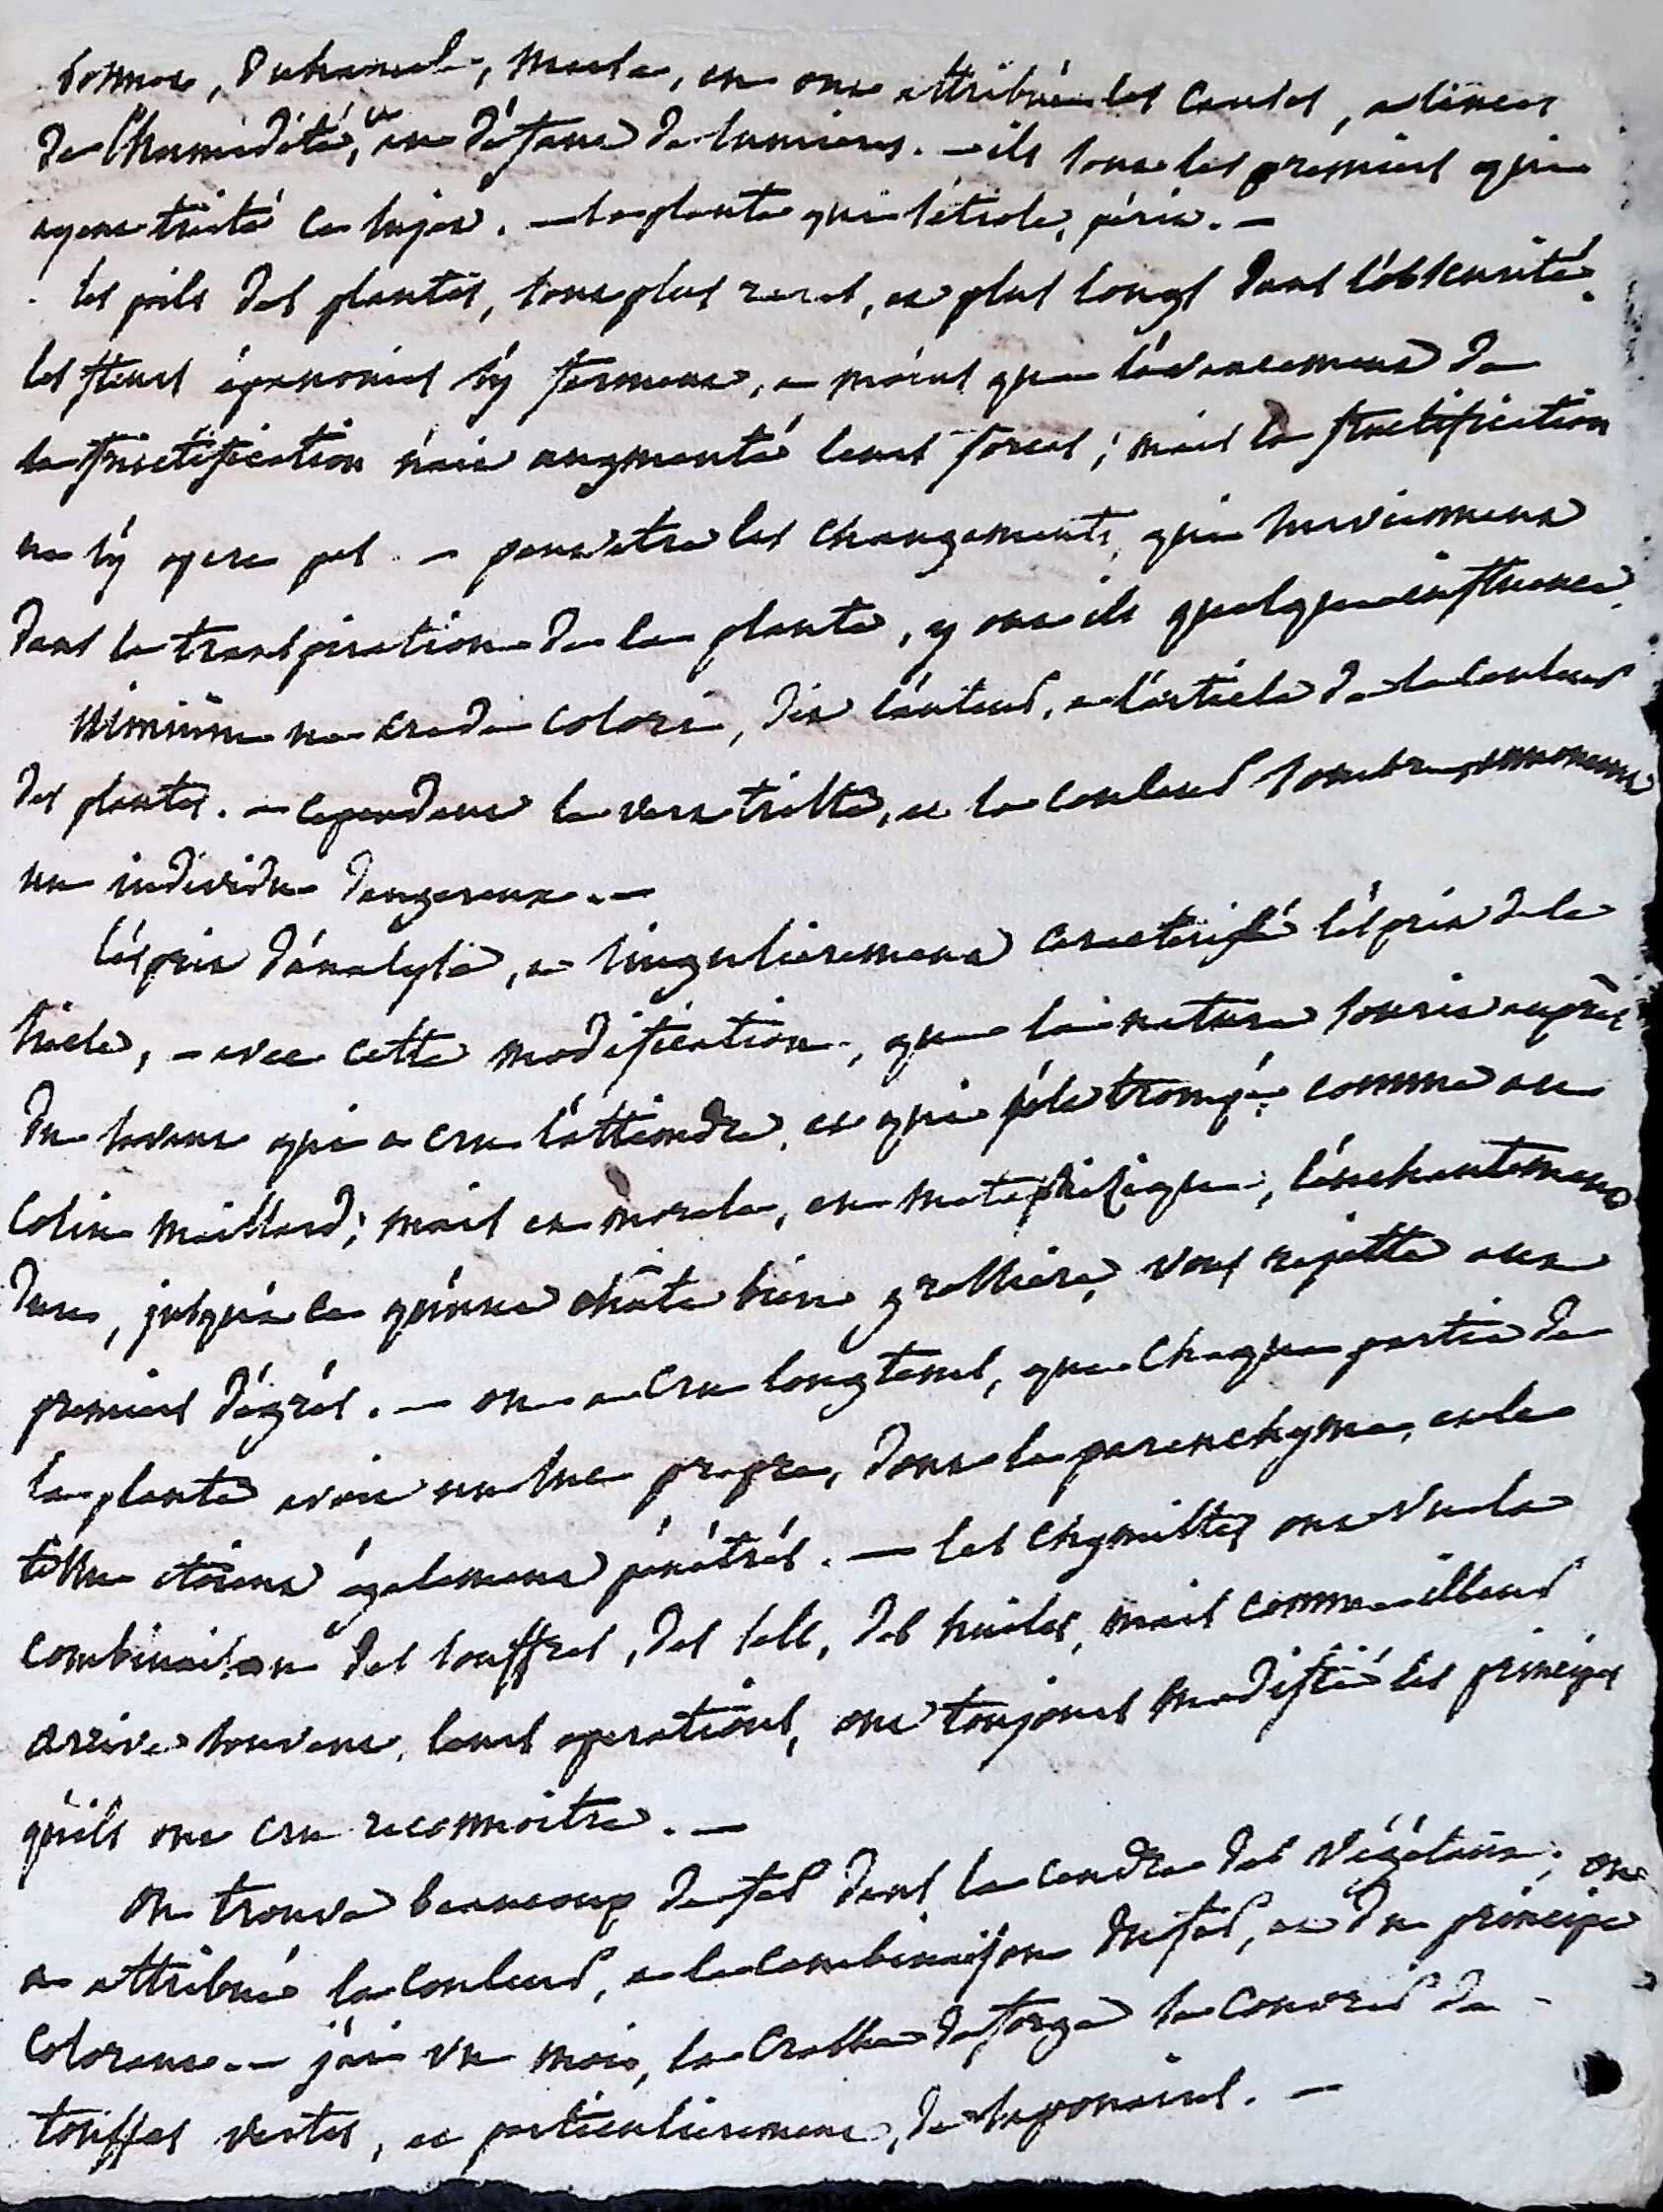 Duhamel, en ont attribué les causes, a l'inces
de l'humidité, ou au défaut de lumieres. — ils sont les premiers qui
ayent traité ce sujet. — la plante qui s'étiole, périt. —
les poils des plantes, sont plus rares, et plus longs dans l'obscurité.
les fleurs épanouies s'y ferment, a moins que l'avancement de
la fructification n'ait augmenté leurs forces; mais la fructification
ne s'y opere pas. — peut etre les changements, qui surviennent
dans la transpiration de la plante, y ont ils quelque influence.
nimium ne crede colori, dit l'auteur, a l'article de la couleur
des plantes. — cependant le vert triste, et la couleur sombre annoncent
un individu dangereux. —
l'esprit d'analyse, a singulierement caracterisé l'esprit de ce
siecle, — avec cette modification, que la nature sourit auprès
du savant qui a cru l'atteindre, et qui s'est trompé comme au
Colin maillard; mais en morale, en metaphisique, l'enchantement
dure, jusqu'a ce qu'une chûte bien grossiere, vous rejette aux
premiers dégrés. — on a cru longtems, que chaque partie de
la plante avoit un suc propre, dont le parenchyme, et le
tissu étoient également pénétrés. — les chymistes ont vu la
combinaison des souffres, des sels, des huiles, mais comme ailleurs
arrive souvent, leurs operations, ont toujours modifié les principes
qu'ils ont cru reconnoitre. —
On trouve beaucoup de fer dans la cendre des végétaux; on
a attribué la couleur, a la combinaison du fer, et du principe
colorant. — j'ai vu moi, la crasse de forge se couvrir de
touffes vertes, et particulierement, de saponaires. —